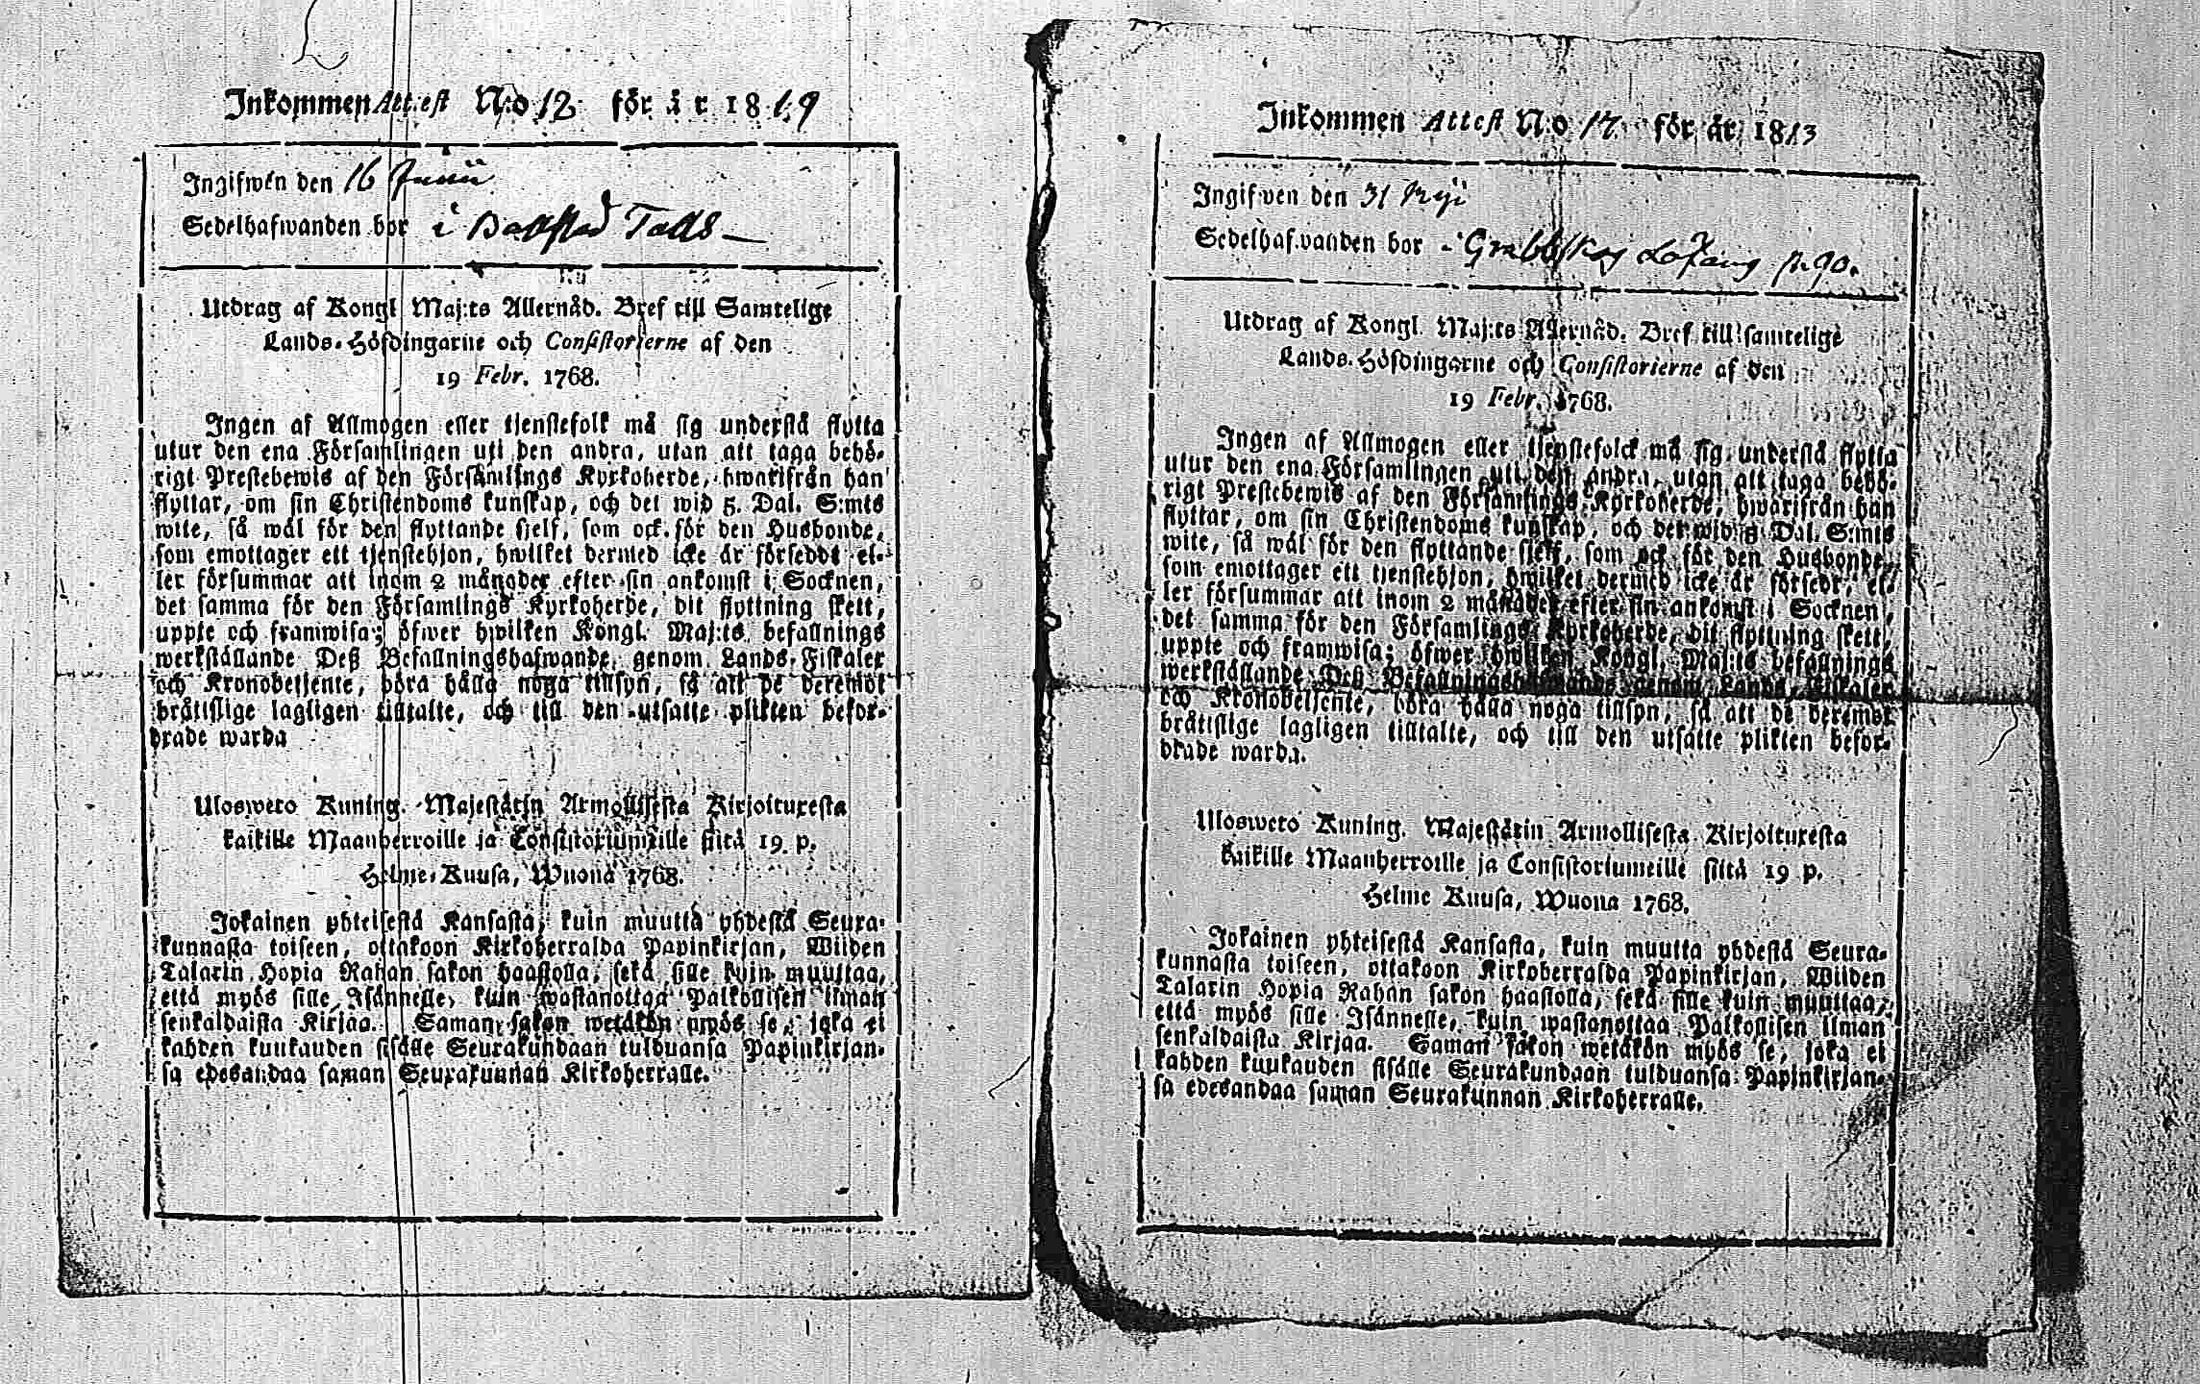 Inkommen Attest N:o 12 för år 1819
Ingifwen den 16 Junii
Sedelhafwanden bor i
Utdrag af Kongl Maj:ts Allernåd. Bref till Samtelige
Lands-Höfdingarne och Consistorierne af den
19 Febr. 1768.
Ingen af Allmogen eller tjenstefolk må sig understå flytta
utur den ena Församlingen uti den andra, utan att taga behö-
rigt Prestebewis af den Församlings Kyrkoherde, hwarifrån han
flyttar, om sin Christendoms kunskap, och det wid 5. Dal. S:mts
wite, så wäl för den flyttande sjelf, som ock för den Husbonde,
som emottager ett tjenstehjon, hwilket dermed icke är förseddt el-
ler försummar att inom 2 månader efter sin ankomst i Socknen,
det samma för den Församlings Kyrkoherde, dit flyttning skett,
uppte och framwisa; öfwer hwilken Kongl. Maj:ts befallnings
werkställande Deß Befallningshafwande, genom Lands-Fiskaler
och Kronobetjente, böra hålla noga tillsyn, så att de deremot
bråttslige lagligen tilltalte, och till den utsatte plikten befor-
drade warda
Ulosweto Kuning. Majestätin Armollisesta Kirjoituxesta
kaikille Maanherroille ja Consistoriumeille siitä 19 p.
Helme-Kuusa, Wuona 1768.
Jokainen yhteisestä Kansasta, kuin muutta yhdestä Seura-
kunnasta toiseen, ottakoon Kirkoherralda Papinkirjan, Wiiden
Talarin Hopia Rahan sakon haastolla, sekä sille kuin muuttaa,
että myös sille Isännelle, kuin wastanottaa Palkollisen ilman
senkaldaista Kirjaa. Saman sakon wetäkön myös se, joka ei
kahden kuukauden sisälle Seurakundaan tulduansa Papinkirjan-
sa edesandaa saman Seurakunnan Kirkoherralle.
Inkommen Attest N:o 17 för år 1813
Ingifven den 31
Sedelhafvanden bor i Grabbskog
Utdrag af Kongl Maj:ts Allernåd. Bref till samtelige
Lands-Höfdingarne och Consistorierne af den
19 Febr. 1768.
Ingen af Allmogen eller tjenstefolck må sig understå flytta
utur den ena Församlingen uti den andra, utan att taga behö-
rigt Prestebewis af den Församlings Kyrkoherde, hwarifrån han
flyttar, om sin Christendoms kunskap, och det wid 5 Dal. S:mts
wite, så wäl för den flyttande sjelf, som ock för den Husbonde,
som emottager ett tjenstehjon, hwilket dermed icke är försedt, el-
ler försummar att inom 2 månader efter sin ankomst i Socknen,
det samma för den Församlings Kyrkoherde, dit flyttning skett,
uppte och framwisa; öfwer hwilken Kongl. Maj:ts befallnings
werkställande Deß Befallningshafwande genom Lands-Fiskaler
och Kronobetjente, böra hålla noga tillsyn, så att de deremot
bråttslige lagligen tilltalte, och till den utsatte plikten befor-
drade warda.
Ulosweto Kuning. Majestätin Armollisesta Kirjoituxesta
kaikille Maanherroille ja Consistoriumeille siitä 19 p.
Helme Kuusa, Wuona 1768.
Jokainen yhteisestä Kansasta, kuin muutta yhdestä Seura-
kunnasta toiseen, ottakoon Kirkoherralda Papinkirjan, Wiiden
Talarin Hopia Rahan sakon haastolla, sekä sille kuin muuttaa,
että myös sille Isännelle, kuin wastanottaa Palkollisen ilman
senkaldaista Kirjaa. Saman sakon wetäkön myös se, joka ei
kahden kuukauden sisälle Seurakundaan tulduansa Papinkirjan-
sa edesandaa saman Seurakunnan Kirkoherralle.